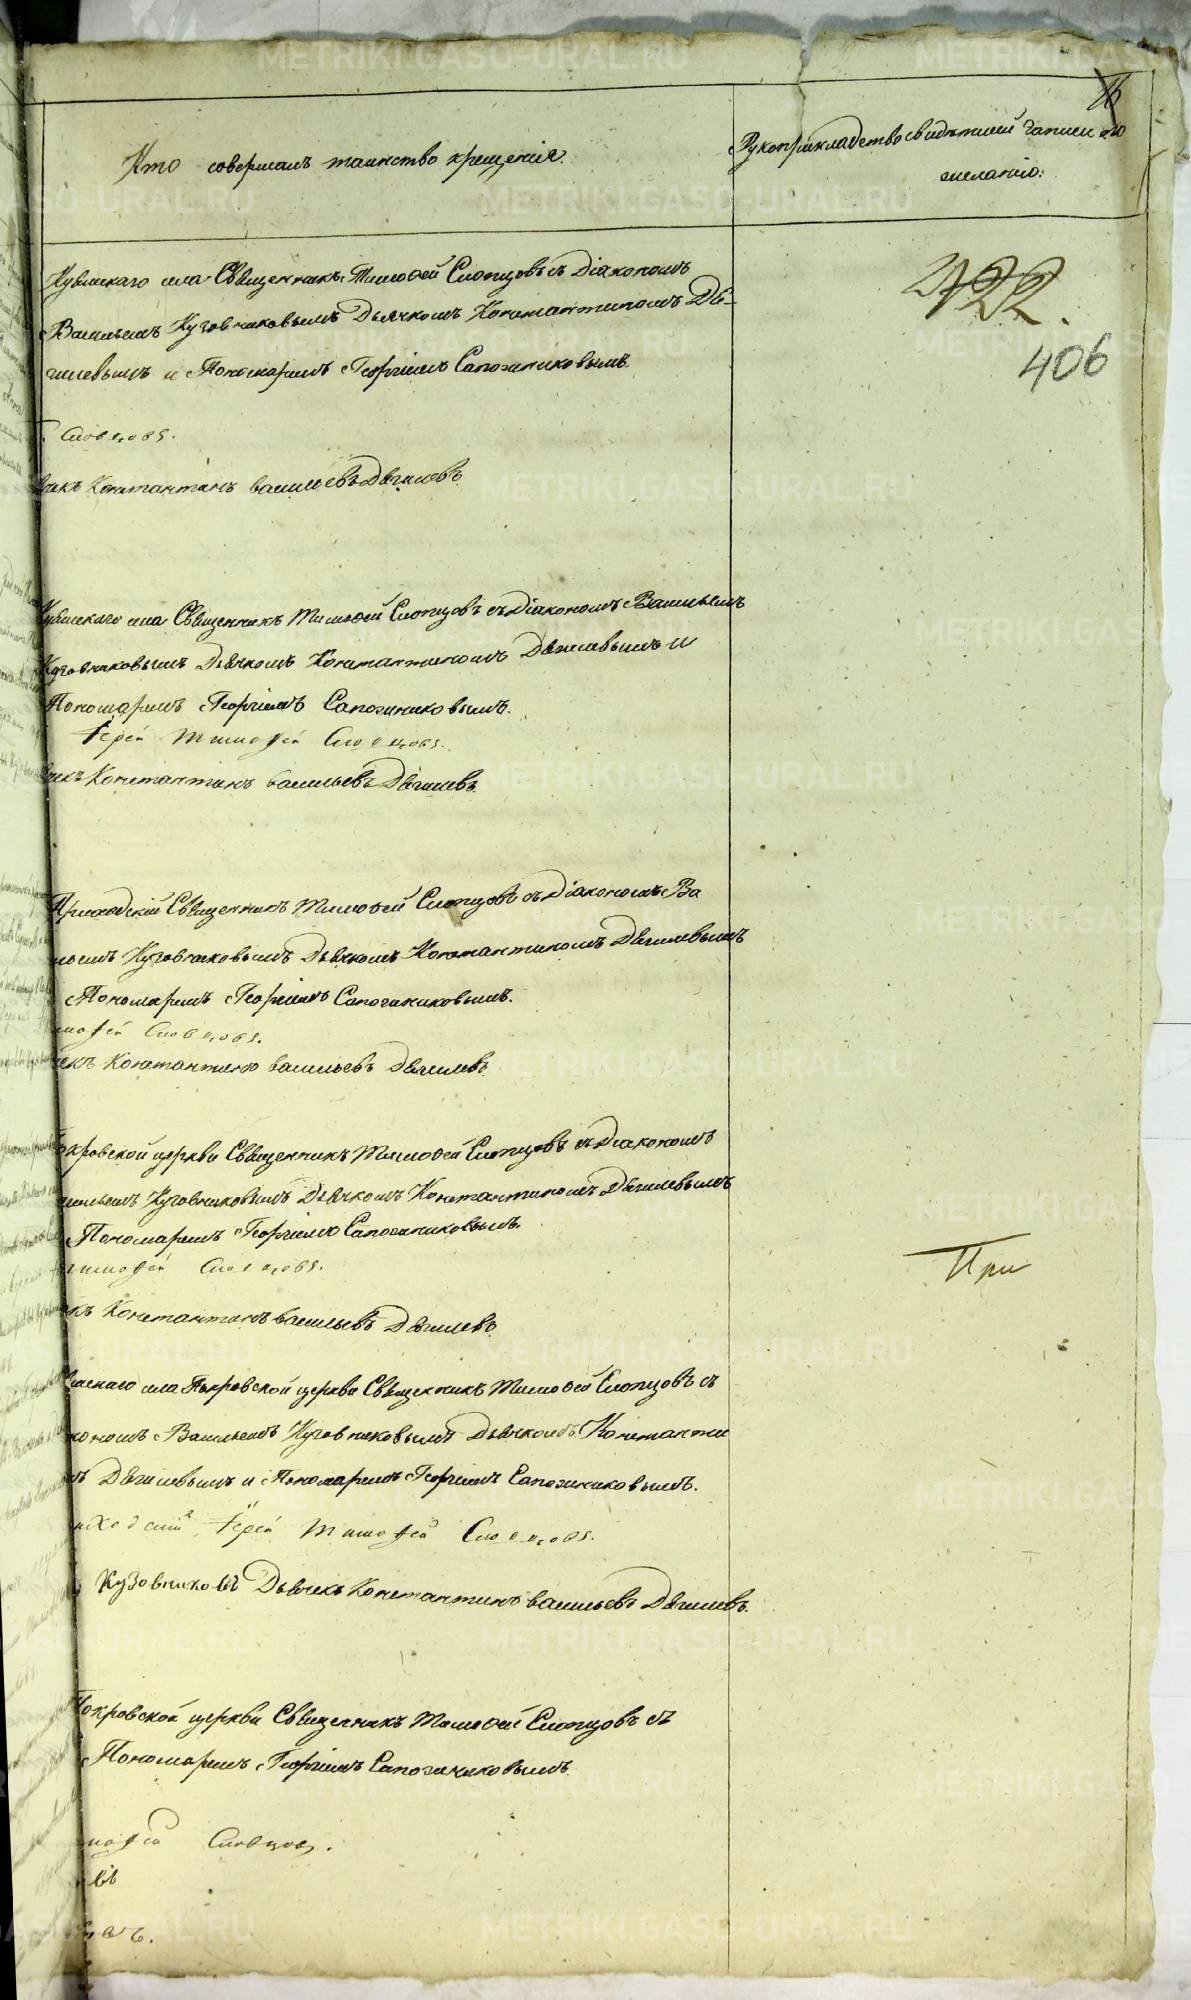 Кто совершалъ таинство крещенія.
Рукоприкладство свидѣтелей записи по
желанію.
16
422.
406
села Священникъ Тимоѳей Словцовъ съ Діакономъ
Васильемъ Кузовниковымъ Дьячкомъ Константиномъ Дя-
гилевымъ и Пономаремъ Георгіемъ Сапожниковымъ
Словцовъ.
Константинъ Васильевъ Дягилевъ
села Священникъ Тимоѳей Словцовъ съ Діакономъ Васильемъ
Кузовниковымъ Дьячкомъ Константиномъ Дягилевымъ и
Пономаремъ Георгіемъ Сапожниковымъ.
Іерей Тимофей Словцовъ.
Константинъ Васильевъ Дягилевъ
Приходскій Священникъ Тимоѳей Словцовъ съ Діакономъ Ва
Кузовниковымъ Дьячкомъ Константиномъ Дягилевымъ
Пономаремъ Георгіемъ Сапожниковымъ.
мофей Словцовъ.
Константинъ Васильевъ Дягилевъ
окровской церкви Священникъ Тимоѳей Словцовъ съ Діакономъ
Кузовниковымъ Дьячкомъ Константиномъ Дягилевымъ
Пономаремъ Георгіемъ Сапожниковымъ.
Тимофей Словцовъ.
Константинъ Васильевъ Дягилевъ
При
села Покровской церкви Священникъ Тимоѳей Словцовъ съ
кономъ Васильемъ Кузовниковымъ Дьячкомъ Константи
Дягилевымъ и Пономаремъ Георгіемъ Сапожниковымъ.
Іерей Тимофей Словцовъ.
Кузовниковъ Дьячекъ Константинъ Васильевъ Дягилевъ.
окровской церкви Священникъ Тимоѳей Словцовъ съ
Пономаремъ Георгіемъ Сапожниковымъ
мофей Словцовъ.
въ
METRIKI.GASO-URAL.RU